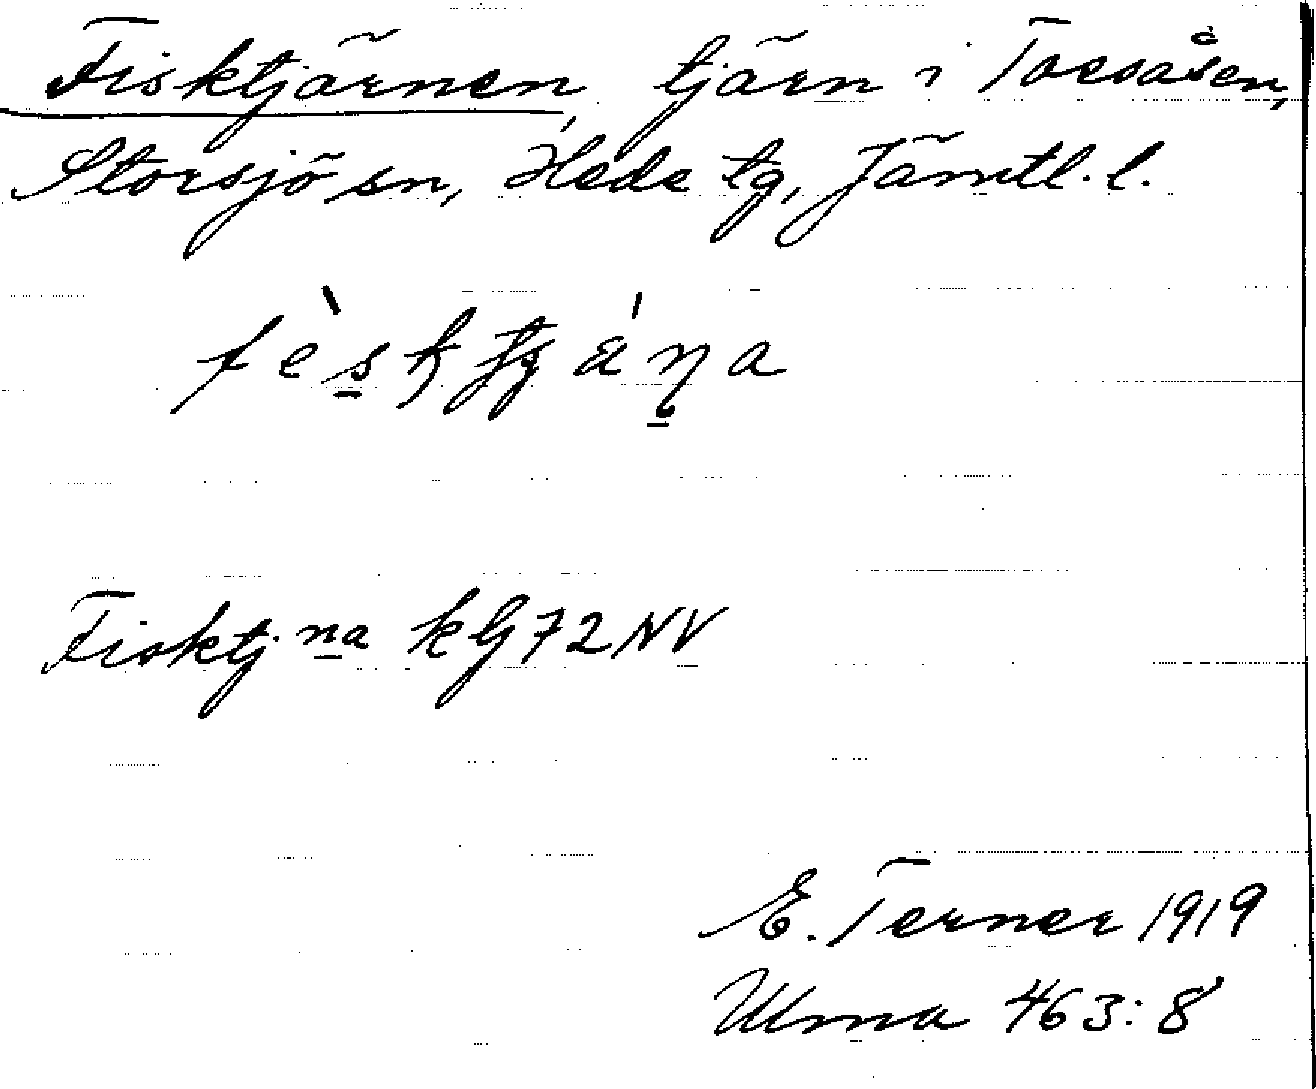 Fisktjärnen, tjärn i Torsåsen,
Storsjö sn, Hede tg, Jämtl. l.
Fisktj. na kG72NV
E. Terner 1919
Ulma 463:8